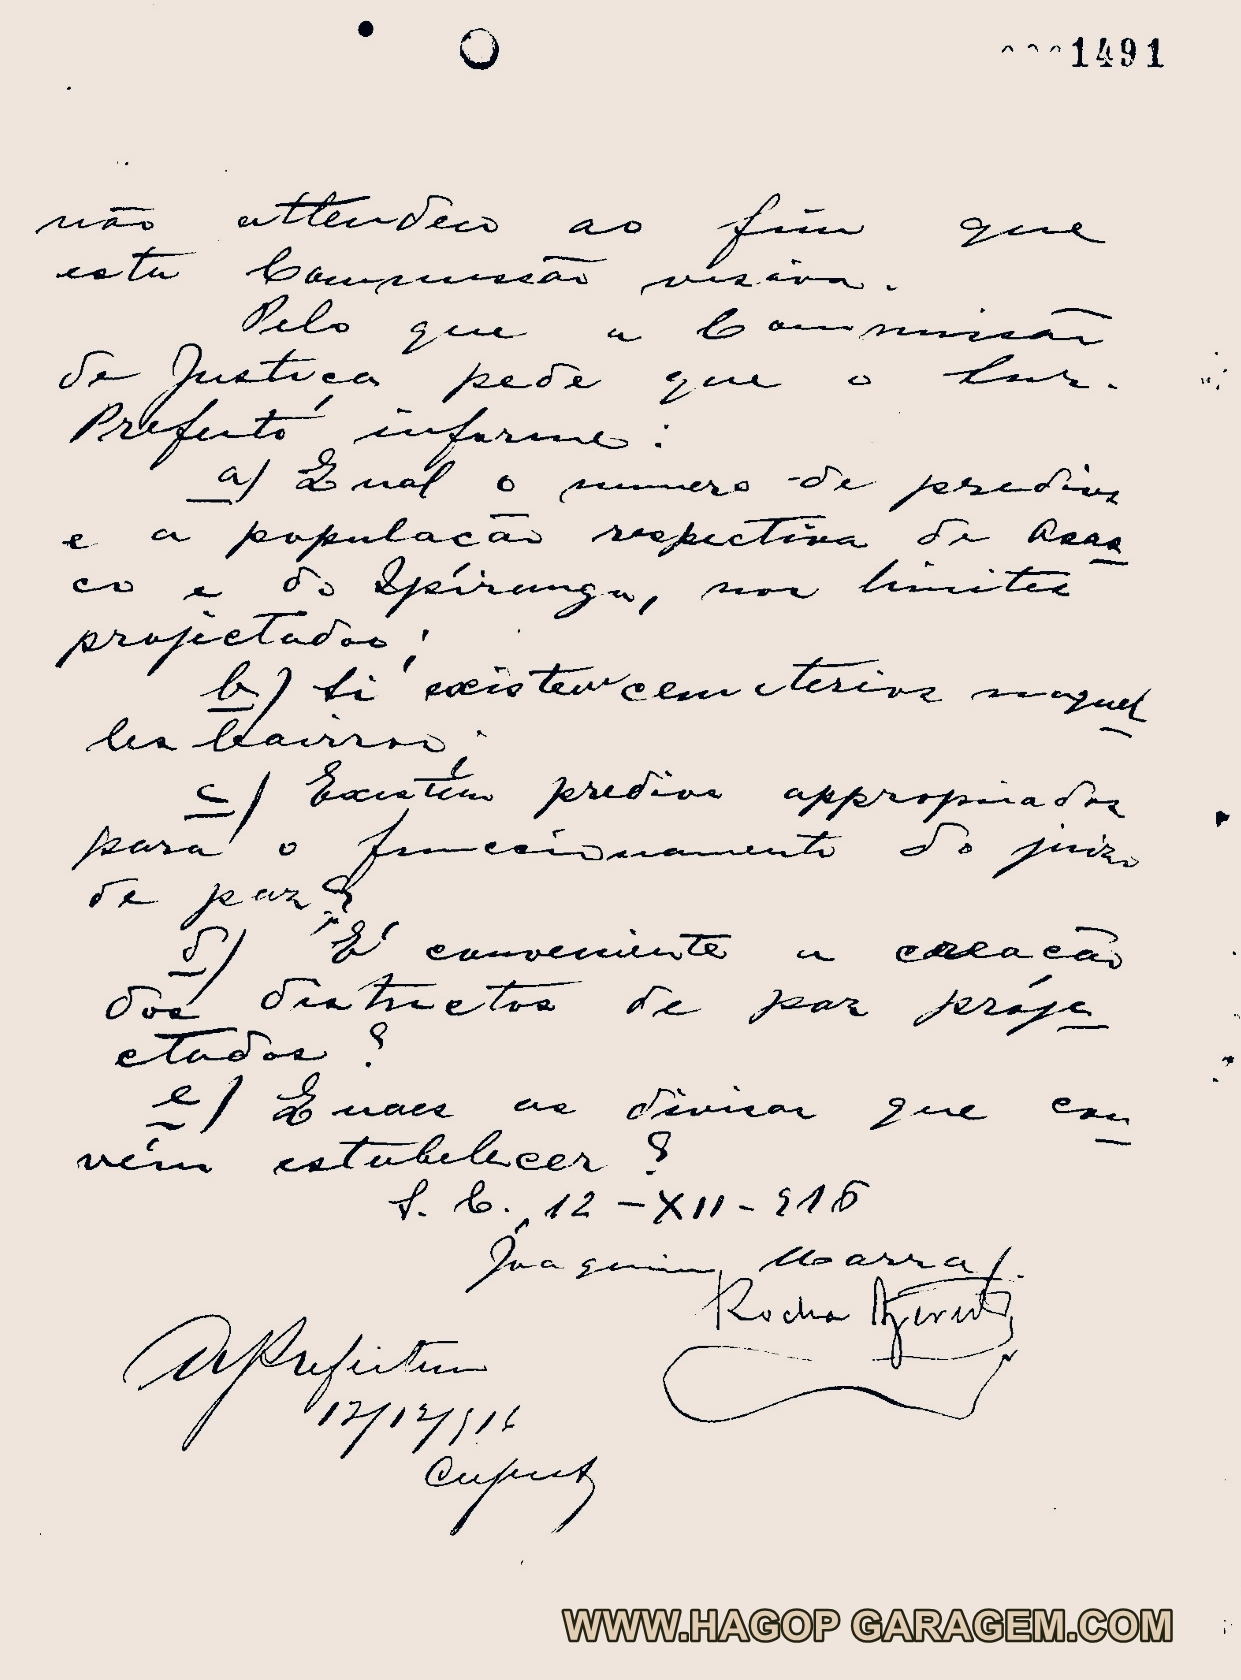 1491
não attendeu ao fim que
esta Commissão visava.
Pelo que a Commissão
de Justiça pede que o Snr.
Prefeito informe:
a) Qual o numero de predios
e a população respectiva de Osas
co e do Ypiranga, nos limites
projectados;
b) Si existem cemiterios naquel
les bairros;
c) Existem predios appropriados
para o funccionamento do juizo
de paz?
d) É conveniente a creação
dos districtos de paz proje
ctados?
e) Quaes as divisas que con
vém estabelecer?
S. C., 12-XII-916
Joaquim Marra
Rocha Azevedo
A Prefeitura
12/12/916
WWW.HAGOP GARAGEM.COM